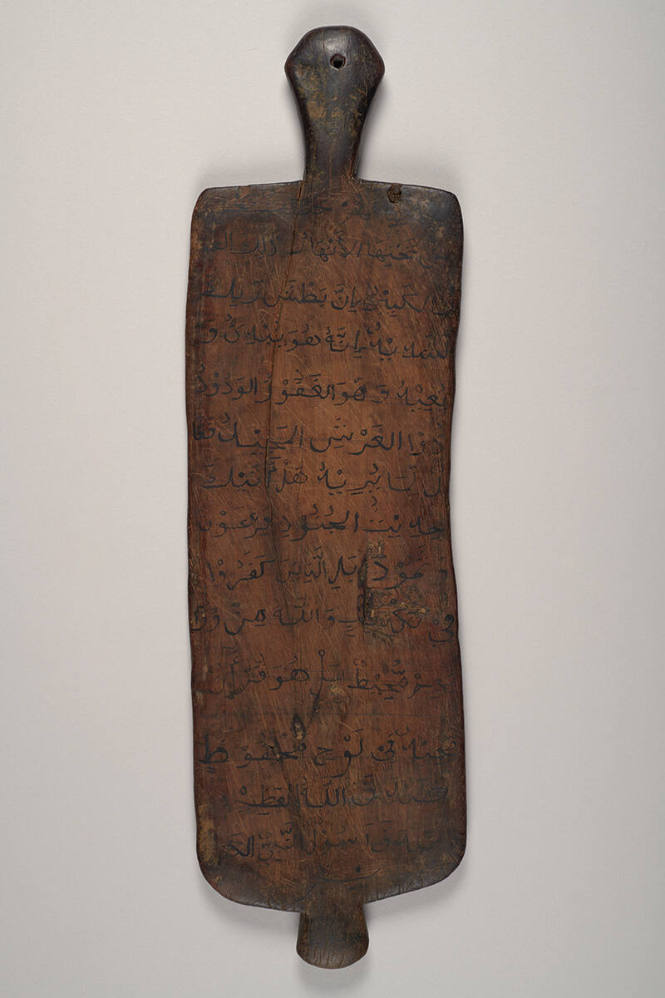 تحتها الأنهار ذلك
الكبير إن بطش ربك
لشديد إنه هو يبدئ و
يعيد وهو الغفور الودود
ذوا العرش المجيد فعا
ل لما يريد هل أتيك
حديث الجنود فرعون
و ثمود بل الذين كفروا
في تكذيب والله من ورا
محيط بل هو قرآن
مجيد في لوح محفوظ
صدق الله العظيم
النبي الكر